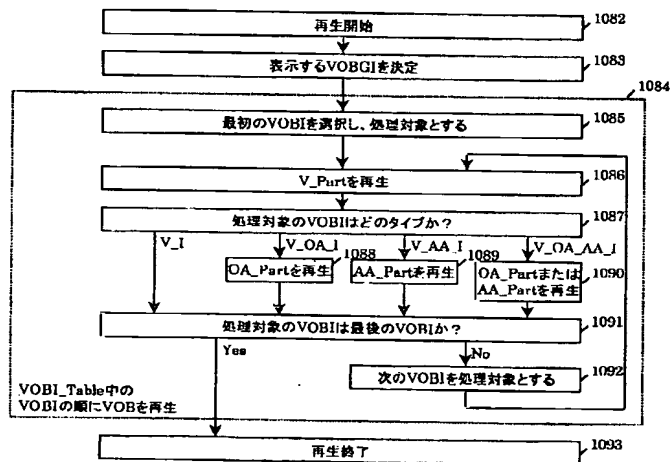 再生開始
1082
表示するVOBGIを決定
1083
1084
最初のVOBIを選択し、処理対象とする
1085
V_Partを再生
1086
処理対象のVOBIはどのタイプか？
1087
V_I
V_OA_I
V_AA_I
V_OA_AA_I
OA_Partを再生
1088
AA_Partを再生
1089
OA_Partまたは
AA_Partを再生
1090
処理対象のVOBIは最後のVOBIか？
1091
Yes
No
次のVOBIを処理対象とする
1092
VOBI_Table中の
VOBIの順にVOBを再生
再生終了
1093